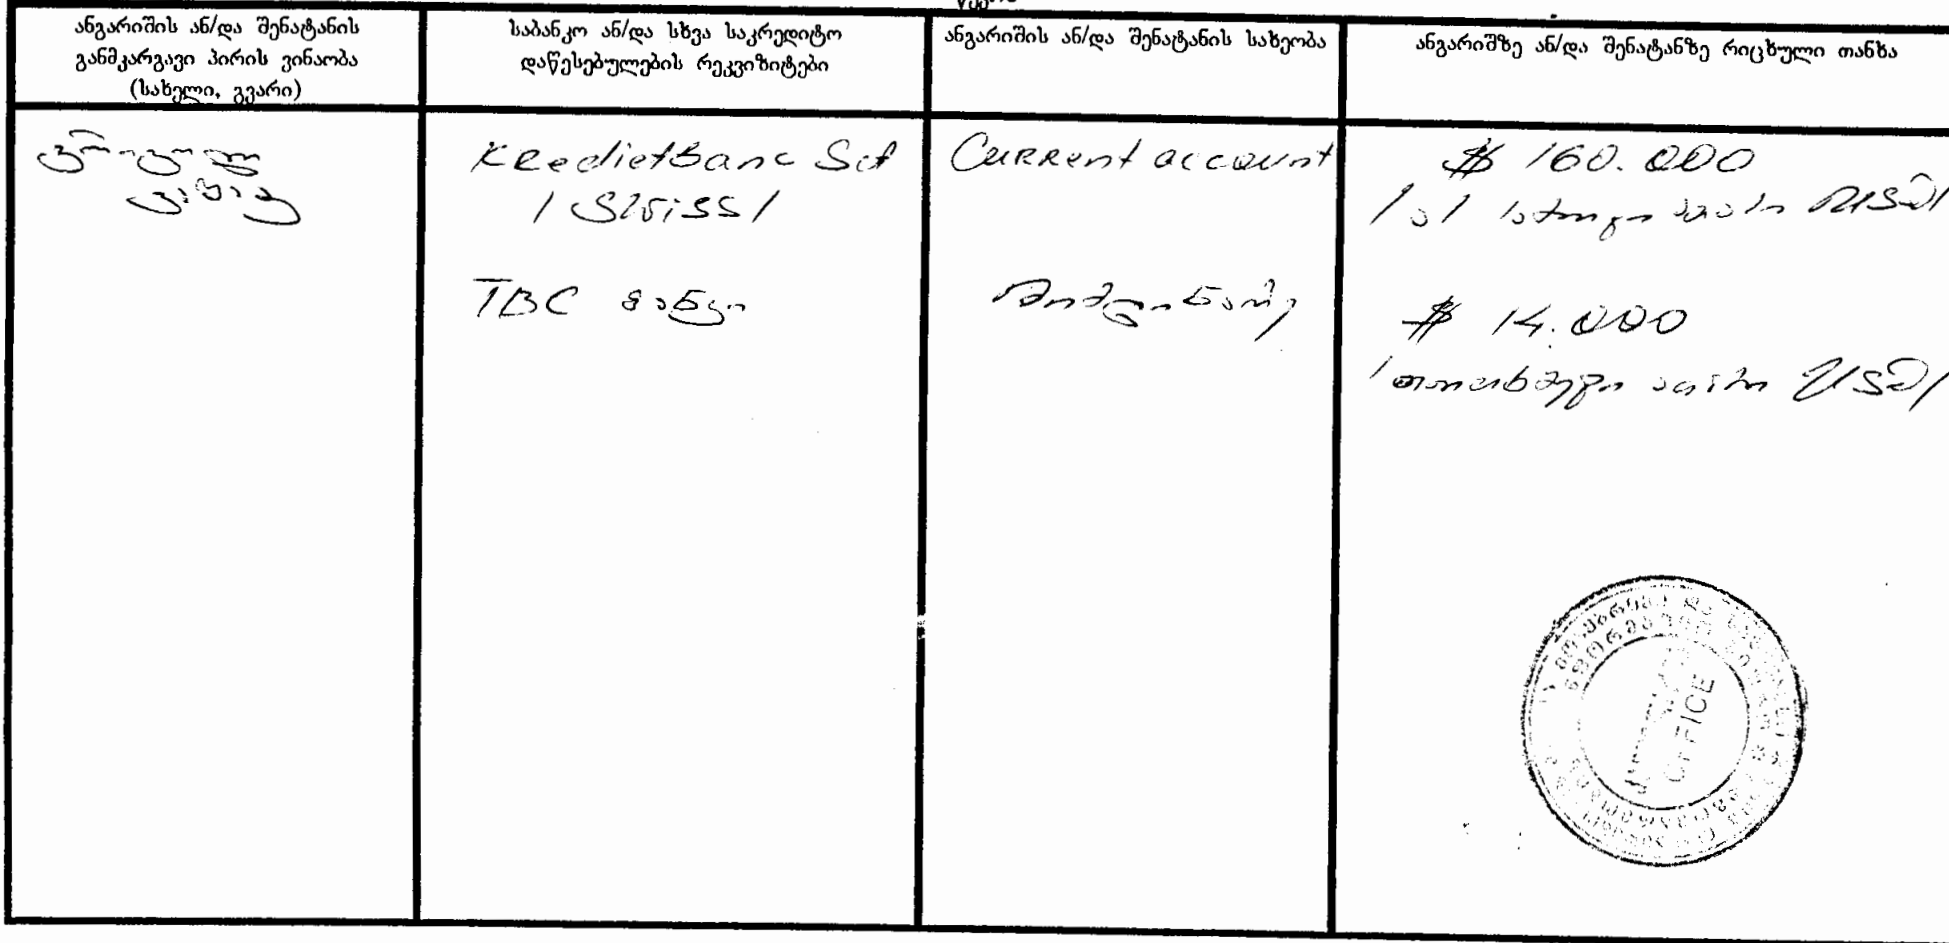 ანგარიშის ან/და შენატანის
განმკარგავი პირის ვინაობა
(სახელი, გვარი)
საბანკო ან/და სხვა საკრედიტო
დაწესებულების რეკვიზიტები
ანგარიშის ან/და შენატანის სახეობა
ანგარიშზე ან/და შენატანზე რიცხული თანხა
გრიგოლ
ვაშაძე
KRedietBanc
/ SWISS /
CURRent account
$ 160.000
/ ა / ათასი USD/
TBC ბანკი
მიმდინარე
$ 14.000
/ თოთხმეტი ათასი USD/
OFFICE